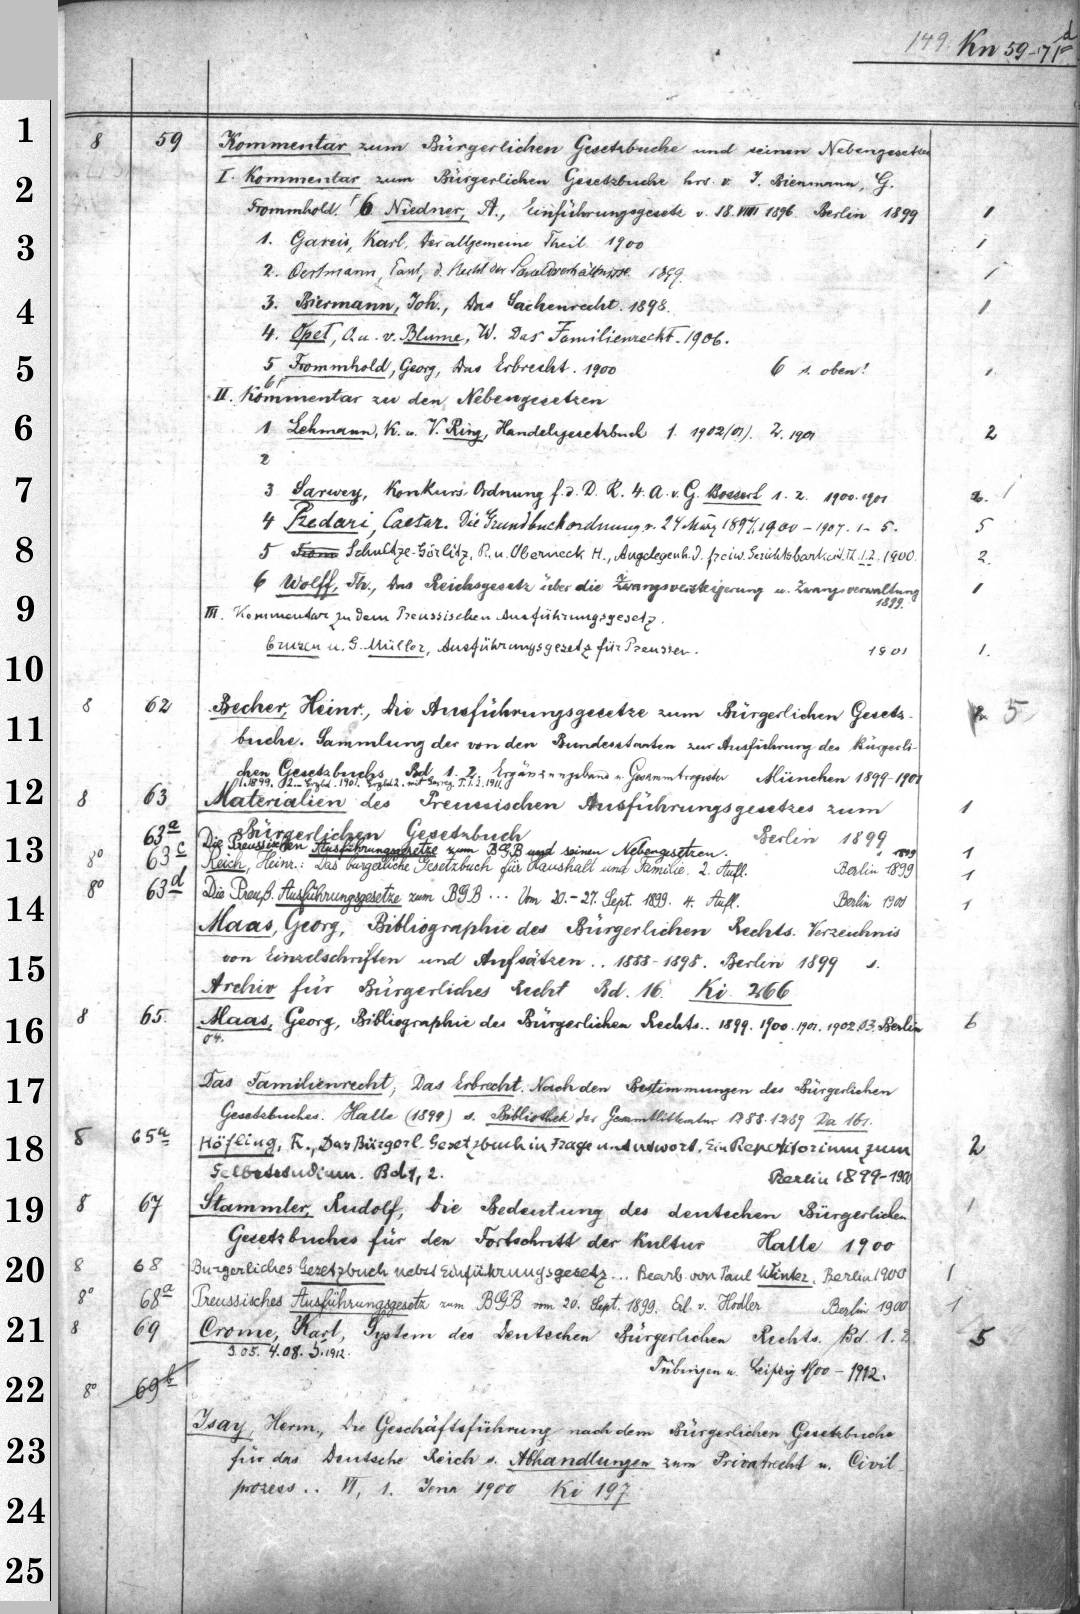 149. Kn 59-71d
1
8 59 Kommentar zum Bürgerlichen Gesetzbuche und seinen Nebengesetzen
2
I. Kommentar zum Bürgerlichen Gesetzbuche hrs. v. J. Biermann, G.
Frommhold. 6 Niedner, A., Einführungsgesetz v. 18. VIII 1896. Berlin 1899 1
3
1. Gareis, Karl, Der allgemeine Theil 1900 1
2. Oertmann, Paul, d. Recht der 1899. 1
4
3. Biermann, Joh., Das Sachenrecht. 1898. 1
4. Opet, O. u. v. Blume, W. Das Familienrecht. 1906.
5
5 Frommhold, Georg, Das Erbrecht. 1900 6 s. oben! 1.
6)
II. Kommentar zu den Nebengesetzen
6
1 Lehmann, K. u. V. Ring, Handelsgesetzbuch 1. 1902/01). 2. 1901 2
2
7
3 Sarwey, Konkurs-Ordnung f. d. D. R. 4. A. v. G. Bossert 1. 2. 1900. 1901 2. 1
4 Predari, Caesar. Die Grundbuchordnung v. 24 März 1897. 1900 - 1907. 1-5. 5
8
5 From Schultze-Görlitz, R. u. Oberneck H., Angelegenh. d. freiw. Gerichtsbarkeit. Tl. 1.2. 1900. 2.
6 Wolff, Th., Das Reichsgesetz über die Zwangsversteigerung u. Zwangsverwaltung 1
1899.
9
III. Kommentar zu dem Preussischen Ausführungsgesetz.
Crusen u. G. Müller, Ausführungsgesetz für Preussen. 1901 1.
10
8 62 Becher, Heinr., Die Ausführungsgesetze zum Bürgerlichen Gesetz- 5
11
buche. Sammlung der von den Bundesstaaten zur Ausführung des Bürgerli-
chen Gesetzbuchs Bd. 1. 2. Ergänzungsband u. Gesammtregister München 1899-1901
12
8 63 Materialien des Preussischen Ausführungsgesetzes zum 1
Bürgerlichen Gesetzbuch Berlin 1899
63a Die Preussischen Ausführungsgesetze zum BGB und seinen Nebengesetzen. 1899 1
13
8° 63c Reich, Heinr.: Das bürgerliche Gesetzbuch für Haushalt und Familie. 2. Aufl. Berlin 1899 1
8° 63d Die Preuß. Ausführungsgesetze zum BGB ... Vom 20.-27. Sept. 1899. 4. Aufl. Berlin 1901 1
14
Maas, Georg, Bibliographie des Bürgerlichen Rechts. Verzeichnis
15
von Einzelschriften und Aufsätzen .. 1888-1898. Berlin 1899 s.
Archiv für Bürgerliches Recht Bd. 16. Ki 266
16
8 65. Maas, Georg, Bibliographie des Bürgerlichen Rechts.. 1899. 1900. 1901. 1902. 03. Berlin 6
04.
17
Das Familienrecht, Das Erbrecht. Nach den Bestimmungen des Bürgerlichen
Gesetzbuches. Halle (1899) s. Bibliothek der Gesamtlitteratur 1288. 1289 Da 161.
18
8 65a Höfling, R., Das Bürgerl. Gesetzbuch in Frage u. Antwort. Ein Repetitorium zum 2
Selbststudium. Bd 1, 2. Berlin 1899-1900
19
8 67 Stammler, Rudolf, Die Bedeutung des deutschen Bürgerlichen 1
Gesetzbuches für den Fortschritt der Kultur Halle 1900
20
8 68 Bürgerliches Gesetzbuch nebst Einführungsgesetz... Bearb. von Paul Winter. Berlin 1900 1
8° 68a Preussisches Ausführungsgesetz zum BGB vom 20. Sept. 1899. Erl. v. Hodler Berlin 1900 1
21
8 69 Crome, Karl, System des Deutschen Bürgerlichen Rechts. Bd. 1. 2 5
3. 05. 4. 08. 5. 1912.
Tübingen u. Leipzig 1900 - 1912.
22
8° 69b
Isay, Herm., Die Geschäftsführung nach dem Bürgerlichen Gesetzbuche
23
für das Deutsche Reich s. Abhandlungen zum Privatrecht u. Civil
prozess .. VI, 1. Jena 1900 Ki 197
24
25